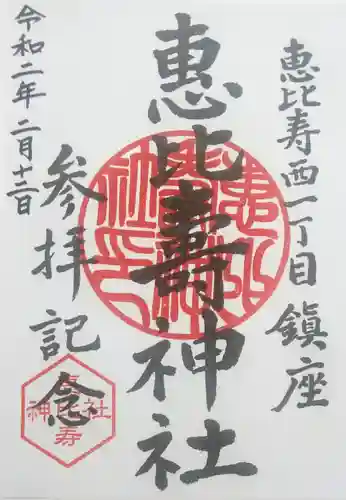 恵比寿西一丁目 鎮座
惠比壽神社
参拝記念
令和二年 二月十二日